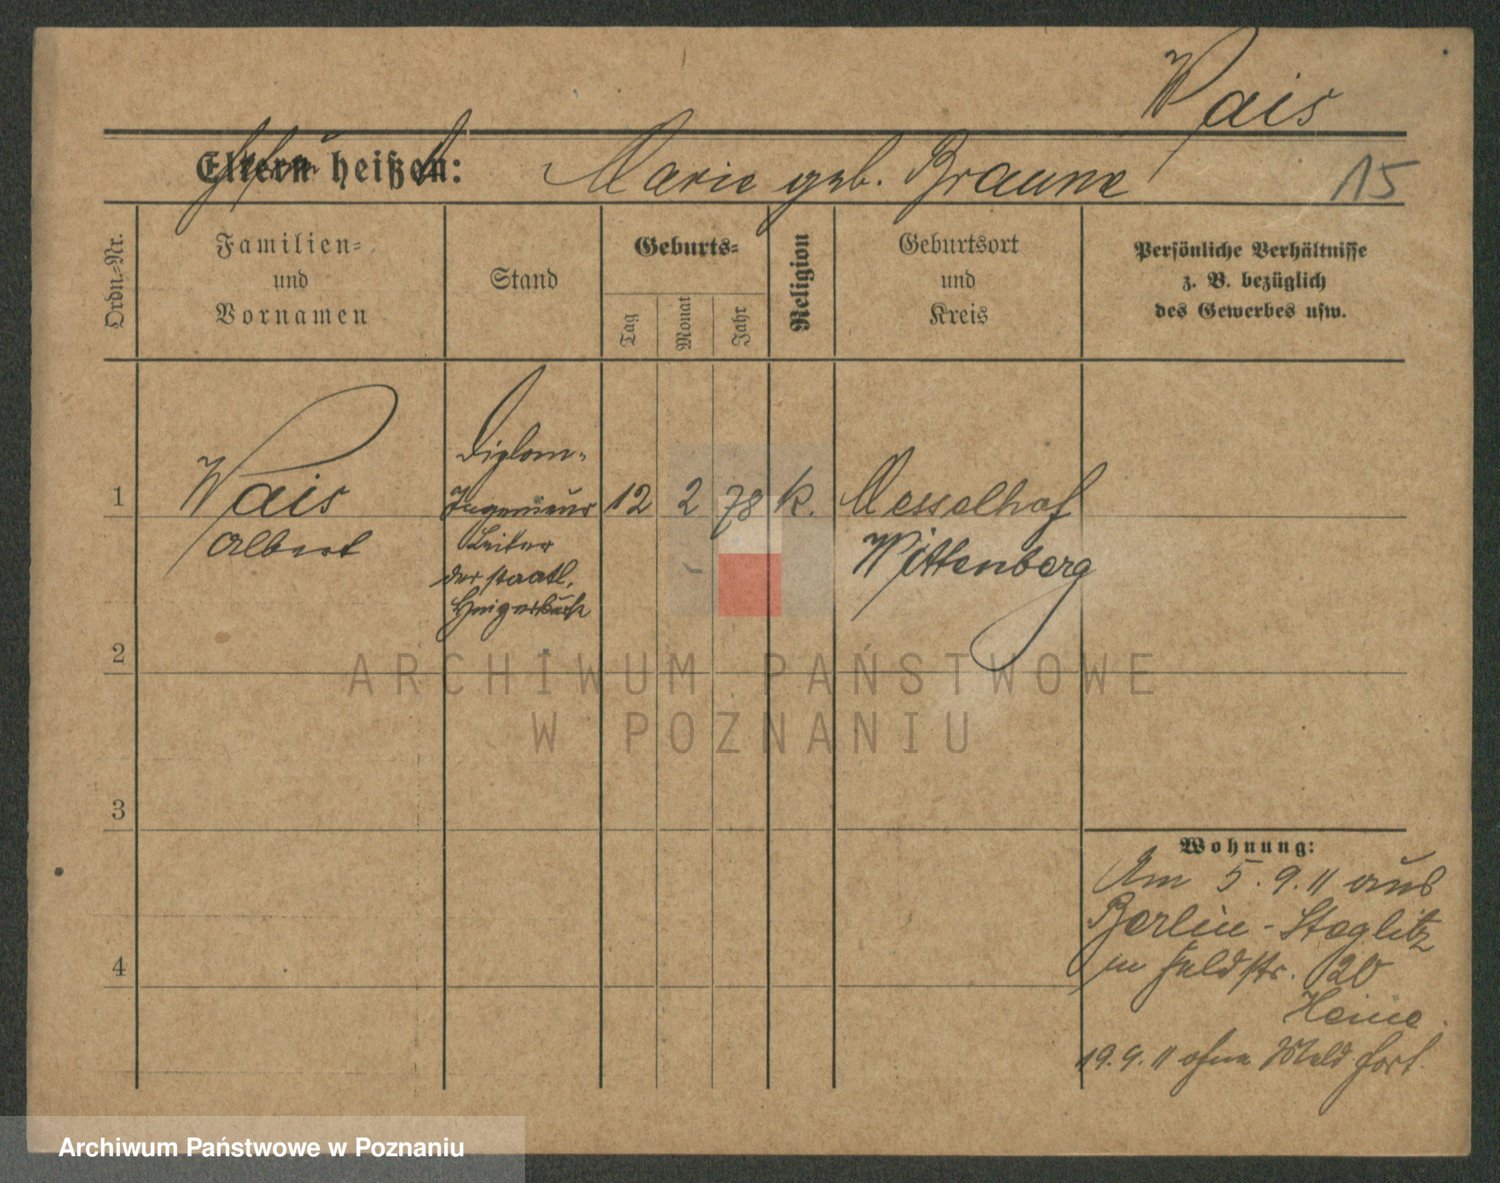 Wais
Eltern heißen: Marie geb. Braune
15
Ordn.-Nr.
Familien-
und
Vornamen
Stand
Geburts-
Tag
Monat
Jahr
Religion
Geburtsort
und
Kreis
Persönliche Verhältnisse
z. B. bezüglich
des Gewerbes usw.
Diplom-
1 Wais Ingenieur 12 2 78 k. Messelhof
Albert Leiter Wittenberg
der staatl.
2
ARCHIWUM PAŃSTWOWE
W POZNANIU
3
Wohnung:
Am 5.9.11 aus
Berlin-Steglitz
in Feldstr. 20
4
Heine
19.9.11 ohne Meld. fort.
Archiwum Państwowe w Poznaniu